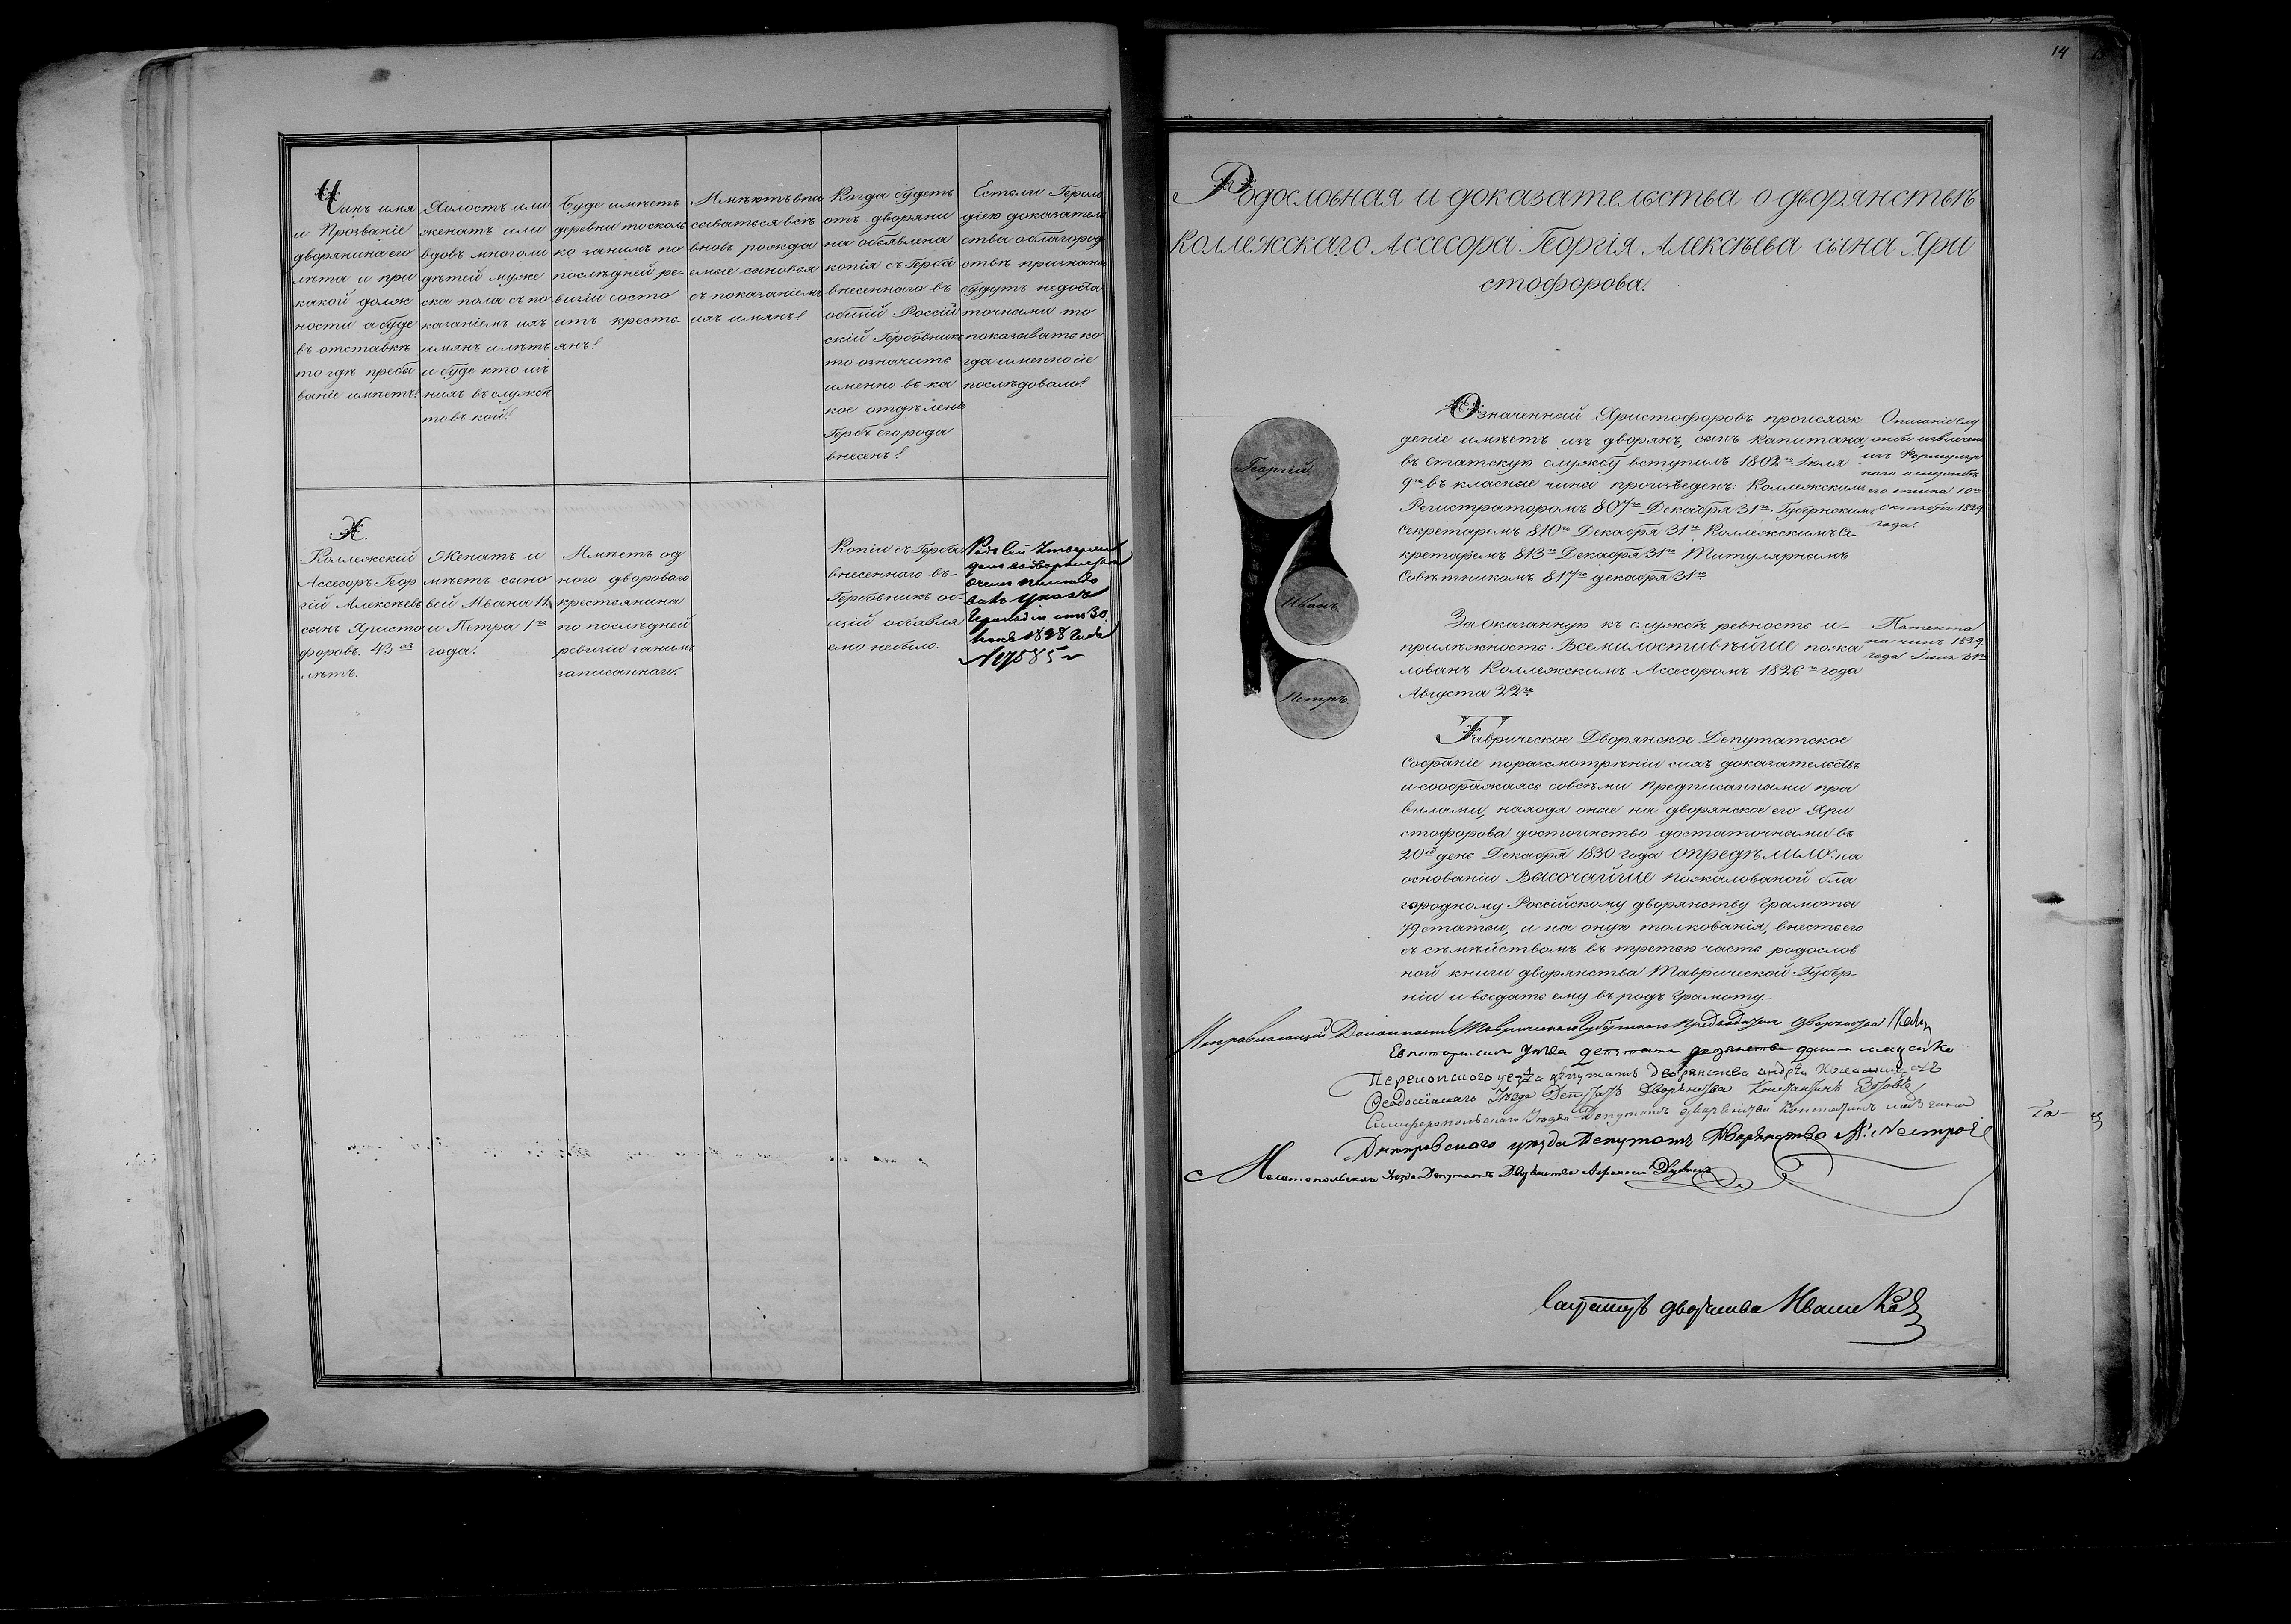 Чинъ имя
и Прозваніе
дворянина его
лѣта и при
какой долж
ности а буде
въ отставкѣ
то гдѣ пребы
ваніе имѣетъ?
Холостъ или
женатъ или
вдовъ многоли
дѣтей муже
ска пола съ по
казаніемъ ихъ
имянъ и лѣтъ
и буде кто изъ
нихъ въ службѣ
то въ кой?
Буде имѣетъ
деревни то сколь
ко за нимъ по
послѣдней ре-
визіи состо
итъ кресть-
янъ?
Имѣютъ впи
сываться всѣ
вновь рожда
емые сыновья
съ показаніемъ
ихъ имянъ?
Когда будетъ
отъ дворяни
на объявлена
копія съ Герба
внесеннаго въ
общій Россій
скій Гербовникъ
то означить
именно въ ка
кое отдѣленіе
Гербъ его рода
внесенъ?
Естьли Героль
діею доказатель
ства о благород
ствѣ признаны
будутъ недоста
точными то
показывать ко
гда именно сіе
послѣдовало?
Х.
Коллежскій
Ассесоръ Геор
гій Алексѣевъ
сынъ Христо
форовъ. 43 хъ
лѣтъ.
Женатъ и
имѣетъ сыно
вей Ивана 11
и Петра 1го
года.
Имѣетъ од
ного двороваго
крестьянина
по послѣдней
ревизіи за нимъ
записаннаго.
Копіи съ Герба
внесеннаго въ-
Гербовникъ об-
щій объявля
емо небыло.
Родъ сей утверж
денъ въ дворянствѣ
о чемъ послѣдо
валъ указъ
Герольдіи отъ 30
1838 года
№ 7585
14
Родословная и доказательства о дворянствѣ
Коллежскаго Ассесора Георгія Алексѣева сына Хри
стофорова.
Георгій.
Иванъ.
Петръ.
Означенный Христофоровъ происхож
деніе имѣетъ изъ дворянъ, сынъ Капитана,
въ статскую службу вступилъ 1802го Іюля
9го въ класные чины произведенъ: Коллежскимъ
Регистраторомъ 807го Декабря 31го Губернскимъ
Секретаремъ 810го Декабря 31го Коллежскимъ Се-
кретаремъ 813го Декабря 31го Титулярнымъ
Совѣтникомъ 817го декабря 31го
Описаніе слу
жбы извлечено
изъ Формуляр
наго о службѣ
его списка 10го
октября 1829
года.
За оказанную къ службѣ ревность и-
прилѣжность Всемилостивѣйше пожа
лованъ Коллежскимъ Ассесоромъ 1826го года
Августа 22го
Патента
на чинъ 1829
года 31го
Таврическое Дворянское Депутатское
Собраніе поразсмотрѣніи сихъ доказательствъ
и соображаясь совсѣми предписанными пра
вилами, находя оные на дворянское его Хри
стофорова достоинство достаточными въ
20й день Декабря 1830 года опредѣлило: на
основаніи Высочайше пожалованой бла
городному Россійскому дворянству Грамоты
79 статьи, и на оную толкованія, внесть его
съ сѣмѣйствомъ въ третью часть родослов
ной книги дворянства Таврической Губер-
ніи и выдать ему въ родъ Грамоту.-
Исправляющій Должность Таврическаго Губернскаго Предводителя Дворянства
Евпаторійскаго уѣзда депутатъ дворянства
Перекопскаго уезда депутатъ Дворянства Андрѣй
Ѳеодосійскаго Уѣзда Депутатъ Дворянства Константинъ
Симферопольскаго Уѣзда Депутатъ дворянства Константинъ
Днепровскаго уѣзда Депутатъ Дворянства
Мелитопольскаго Уѣзда Депутатъ Дворянства
Секретарь дворянства Ивашковъ